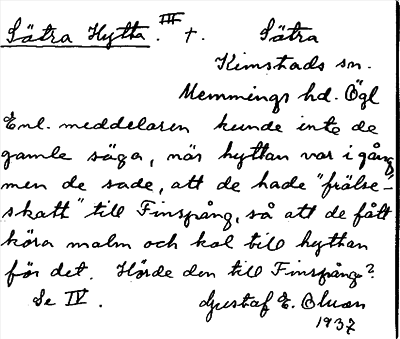 Sätra Hytta. III †. Sätra
Kimstads sn.
Memmings hd. Ögl
Enl. meddelaren kunde inte de
gamle säga, när hyttan var i gång,
men de sade, att de hade "frälse-
skatt" till Finspång, så att de fått
köra malm och kol till hyttan
för det. Hörde den till Finspång?
Se IV. Gustaf E. Olson
1937